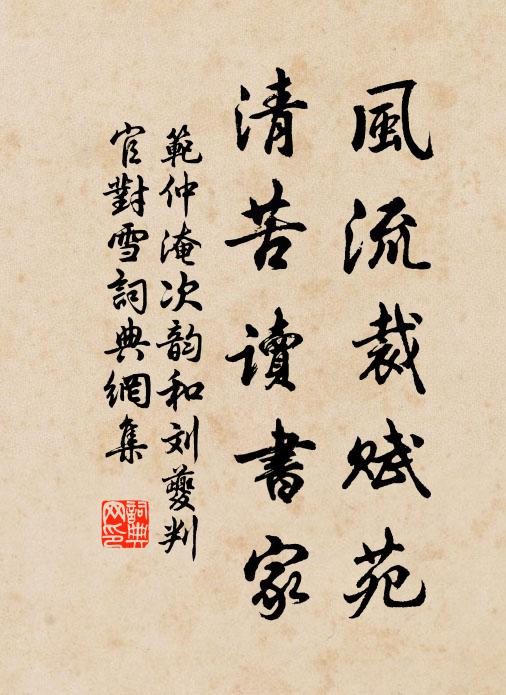 風流裁賦苑
清苦讀書家
範仲淹次韵和刘夔判
官對雪詞典網集
詞典
网印